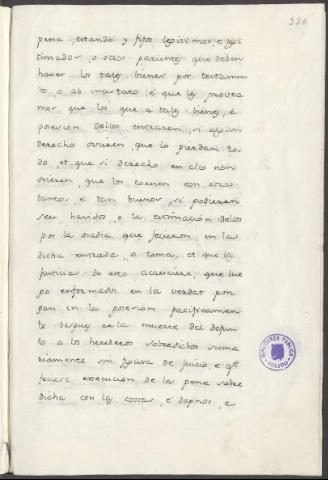 386
pena, estando y fijos legitimos, e legi
timador, o otros parientes que deben
haver los tales bienes por testamen
to, o ab intestato: é que
mos que los que a tales bienes, é
posesion dellos entraren, si algun
derecho ovieren, que lo pierdan to
do, et que si derecho en ello non
ovieren, que los tornen con otros
tantos, e tan buenos, si podieren
seer havidos, o la estimación dellos
por la osadia, que fecieron en la
dicha entrada, o toma, et que la
justicia do esto acaesciere, que lue
go enformado en la verdat pon
gan en la posesion pacificamen
te despues de la muerte del defun
to a los herederos sobredichos suma
riamente sin figura de juicio, e
faciese execución de la pena sobre
dicha con las costas, é dapnos, e
BIBLIOTECA PUBLICA
TOLEDO